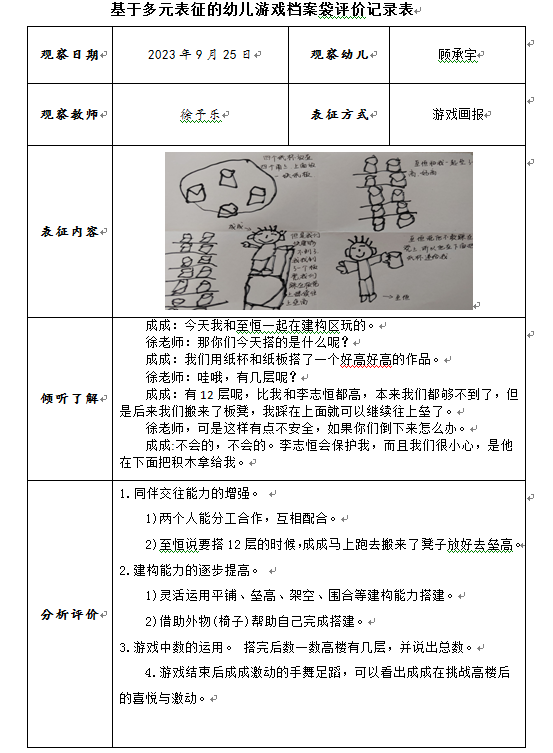 基于多元表征的幼儿游戏档案袋评价记录表
观察日期 2023年9月25日 观察幼儿 顾承宇
观察教师 徐予乐 表征方式 游戏画报
表征内容
倾听了解
成成：今天我和至恒一起在建构区玩的。
徐老师：那你们今天搭的是什么呢？
成成：我们用纸杯和纸板搭了一个好高好高的作品。
徐老师：哇哦，有几层呢？
成成：有12层呢，比我和李志恒都高，本来我们都够不到了，但
是后来我们搬来了板凳，我踩在上面就可以继续往上垒了。
徐老师，可是这样有点不安全，如果你们倒下来怎么办。
成成:不会的，不会的。李志恒会保护我，而且我们很小心，是他
在下面把积木拿给我。
分析评价
1.同伴交往能力的增强。
1)两个人能分工合作，互相配合。
2)至恒说要搭12层的时候,成成马上跑去搬来了凳子放好去垒高。
2.建构能力的逐步提高。
1)灵活运用平铺、垒高、架空、围合等建构能力搭建。
2)借助外物(椅子)帮助自己完成搭建。
3.游戏中数的运用。 搭完后数一数高楼有几层，并说出总数。
4.游戏结束后成成激动的手舞足蹈，可以看出成成在挑战高楼后
的喜悦与激动。